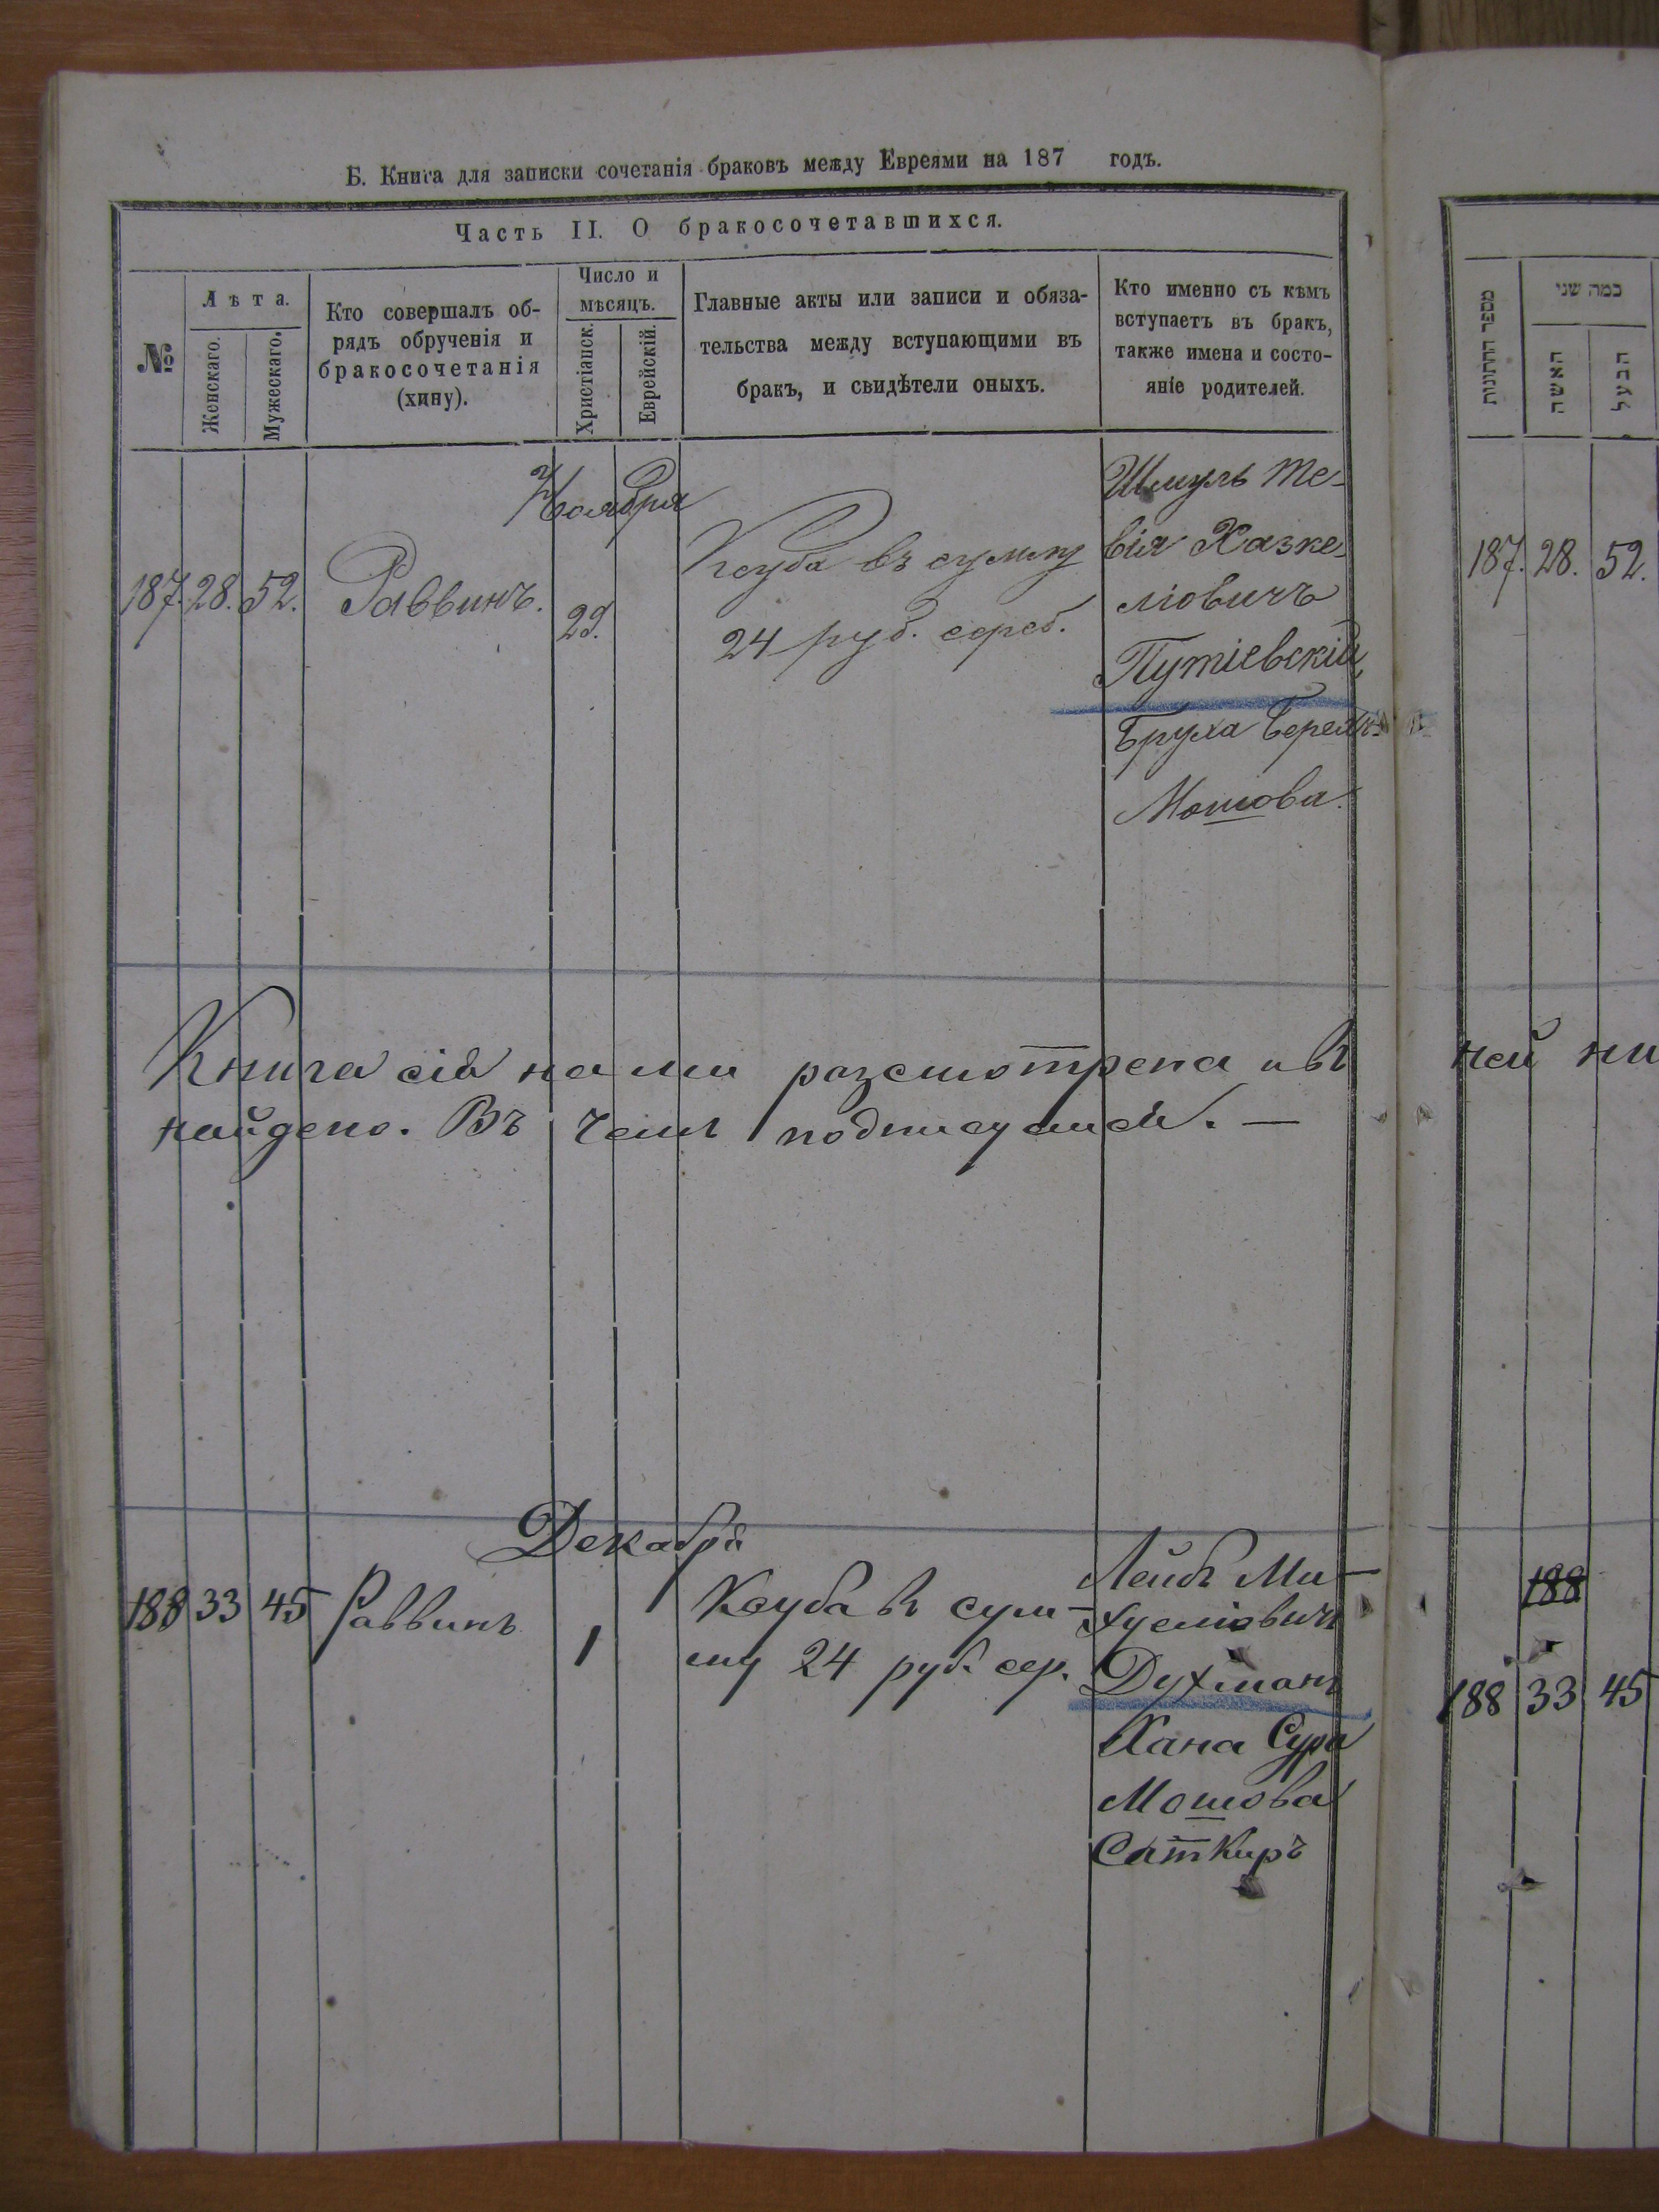 Б. Книга для записки сочетанія браковъ между Евреями на 187 годъ.
Часть II. О бракосочетавшихся.
№
Лѣта.
Женскаго.
Мужескаго.
Кто совершалъ об-
рядъ обрученія и
бракосочетанія
(хину).
Число и
мѣсяцъ.
Христіанск.
Еврейскій.
Главные акты или записи и обяза-
тельства между вступающими въ
бракъ, и свидѣтели оныхъ.
Кто именно съ кѣмъ
вступаетъ въ бракъ,
также имена и состо-
яніе родителей.
Ноября
187. 28. 52. Раввинъ. 29.
Ксуба въ сумму
24 руб. сереб.
Шмуль Те-
вія Хазке-
ліовичъ
Путіевскій,
Бруха Берекъ
Мошова.
Книга сія нами разсмотрена и въ ней ни
найдено. Въ чемъ подписуемся. —
Декабря
188 33 45 Раввинъ 1
Ксуба въ сум-
му 24 руб. сер.
Лейбъ Ми-
хуеліовичъ
Духманъ
Хана Сура
Мошова
Саткиръ
מספר החתונות
כמה שני
האשה
הבעל
187. 28. 52.
188
188 33 45